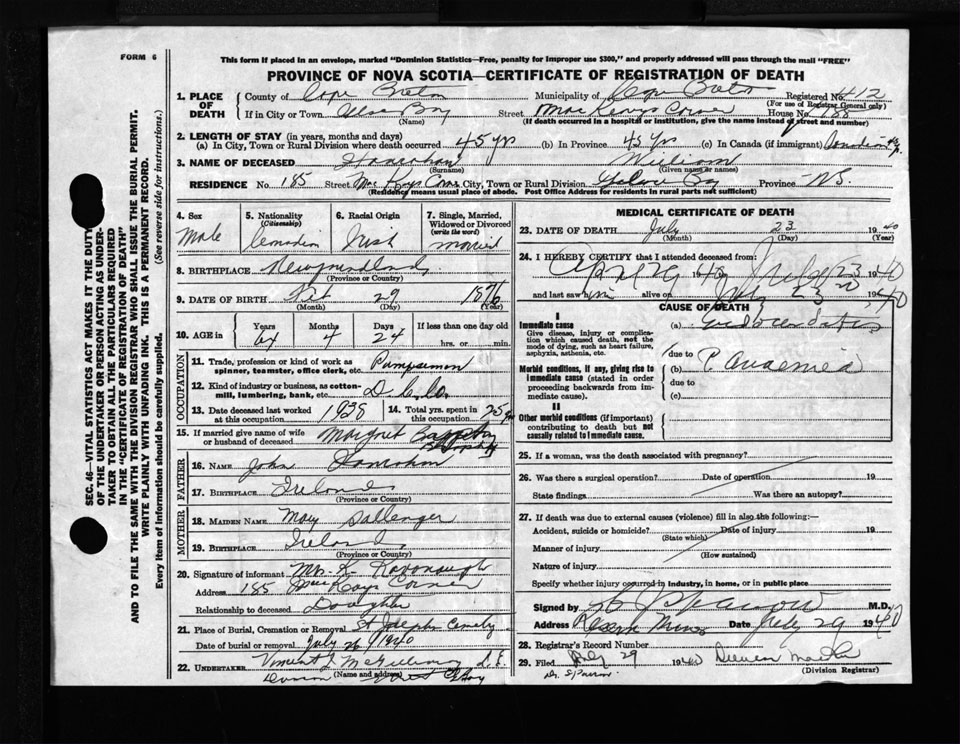 FORM 6
This form if placed in an envelope, marked "Dominion Statistics—Free, penalty for improper use $300," and properly addressed will pass through the mail "FREE"
PROVINCE OF NOVA SCOTIA—CERTIFICATE OF REGISTRATION OF DEATH
1. PLACE OF DEATH
County of Cape Breton Municipality of Cape Breton Registered No. 412
(For use of Registrar General only)
If in City or Town Glace Bay Street MacKays Corner House No. 185
(Name) (If death occurred in a hospital or institution, give the name instead of street and number)
2. LENGTH OF STAY (in years, months and days)
(a) In City, Town or Rural Division where death occurred 45 yrs (b) In Province 45 yrs (c) In Canada (if immigrant)
3. NAME OF DECEASED Hanrahan William
(Surname) (Given name or names)
RESIDENCE No. 185 Street MacKays Corner City, Town or Rural Division Glace Bay Province N.S.
(Residency means usual place of abode. Post Office Address for residents in rural parts not sufficient)
4. Sex Male
5. Nationality (Citizenship) Canadian
6. Racial Origin Irish
7. Single, Married, Widowed or Divorced (write the word) married
8. BIRTHPLACE Newfoundland
(Province or Country)
9. DATE OF BIRTH 29 1876
(Month) (Day) (Year)
10. AGE in Years 64 Months 4 Days 24 If less than one day old
hrs. or min.
OCCUPATION
11. Trade, profession or kind of work as spinner, teamster, office clerk, etc. Pumpman
12. Kind of industry or business, as cotton-mill, lumbering, bank, etc. D.C.Co.
13. Date deceased last worked at this occupation 1938
14. Total yrs. spent in this occupation 25 yrs
15. If married give name of wife or husband of deceased Margret
FATHER
16. NAME John Hanrahan
17. BIRTHPLACE Ireland
(Province or Country)
MOTHER
18. MAIDEN NAME Mary Dallenger
19. BIRTHPLACE Ireland
(Province or Country)
20. Signature of informant Mrs. K. Kavanaugh
Address 185 MacKays Corner
Relationship to deceased Daughter
21. Place of Burial, Cremation or Removal St Josephs Cemetry
Date of burial or removal July 26 / 1940
22. UNDERTAKER Vincent J.
(Name and address)
MEDICAL CERTIFICATE OF DEATH
23. DATE OF DEATH July 23 1940
(Month) (Day) (Year)
24. I HEREBY CERTIFY that I attended deceased from:
April 29 1940 July 23 1940
and last saw him alive on July 23 1940
CAUSE OF DEATH
I
Immediate cause
Give disease, injury or complication which caused death, not the mode of dying, such as heart failure, asphyxia, asthenia, etc.
(a) Endocarditis
due to
Morbid conditions, if any, giving rise to immediate cause (stated in order proceeding backwards from immediate cause).
(b) P. Anaemia
due to
(c)
II
Other morbid conditions (if important) contributing to death but not causally related to immediate cause.
25. If a woman, was the death associated with pregnancy?
26. Was there a surgical operation? Date of operation 19
State findings Was there an autopsy?
27. If death was due to external causes (violence) fill in also the following:—
Accident, suicide or homicide? Date of injury 19
(State which)
Manner of injury
(How sustained)
Nature of injury
Specify whether injury occurred in industry, in home, or in public place
Signed by M.D.
Address Reserve Mines Date July 29 1940
28. Registrar's Record Number
29. Filed July 29 1940
(Division Registrar)
SEC. 46—VITAL STATISTICS ACT MAKES IT THE DUTY
OF THE UNDERTAKER OR PERSON ACTING AS UNDER-
TAKER TO OBTAIN ALL THE PARTICULARS REQUIRED
IN THE "CERTIFICATE OF REGISTRATION OF DEATH"
AND TO FILE THE SAME WITH THE DIVISION REGISTRAR WHO SHALL ISSUE THE BURIAL PERMIT.
WRITE PLAINLY WITH UNFADING INK. THIS IS A PERMANENT RECORD.
Every item of information should be carefully supplied. (See reverse side for instructions.)